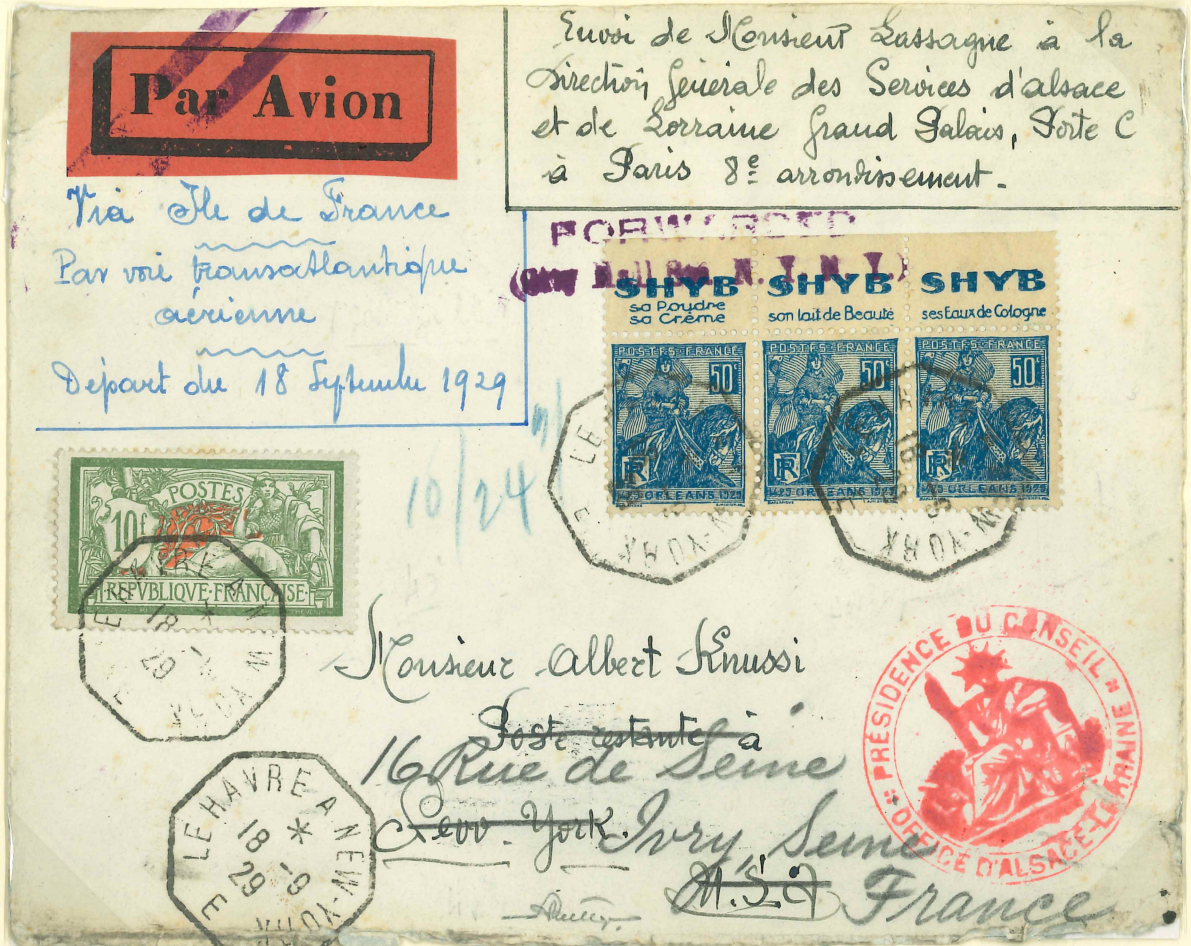 Par Avion
Envoi de Monsieur Lassagne à la
Direction Générale des Services d'alsace
et de Lorraine Grand Palais, Porte C
à Paris 8e arrondissement.
Via Ile de France
Par voie transatlantique
aérienne
Départ du 18 Septembre 1929
FORWARDED
N. Y. N. Y.)
SHYB
sa Poudre
sa Crème
SHYB
son lait de Beauté
SHYB
ses Eaux de Cologne
POSTES-FRANCE
50c
RF
1429 ORLEANS 1929
POSTES-FRANCE
50c
RF
1429 ORLEANS 1929
POSTES-FRANCE
50c
RF
1429 ORLEANS 1929
10/24
POSTES
10f
REPVBLIQVE·FRANÇAISE
LE HAVRE A N
18
29
Monsieur Albert Knussi
Poste restante à
16 Rue de Seine
New York. Ivry, Seine
U.S.A France
PRÉSIDENCE DU CONSEIL
OFFICE D'ALSACE-LORRAINE
LE HAVRE A NEW-YORK
18 -9
29
E